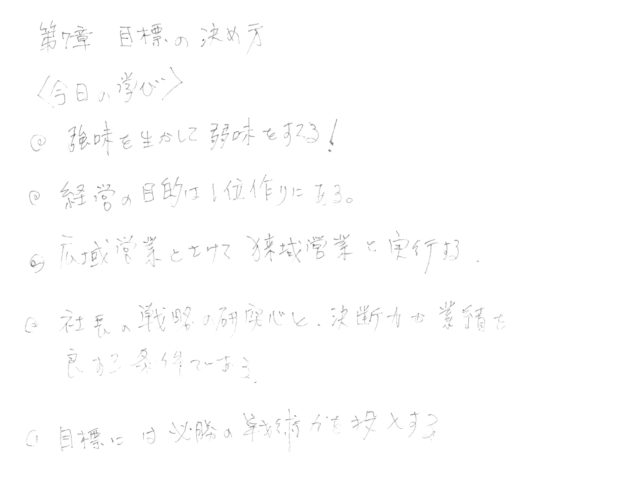 第7章 目標の決め方
〈今日の学び〉
◎ 強味を生かして弱味をすてる!
◎ 経営の目的は1位作りにある。
◎ 広域営業をさけて狭域営業を実行する。
◎ 社長の戦略の研究心と、決断力が業績を
良する条件である。
◎ 目標には必勝の戦術力を投入する